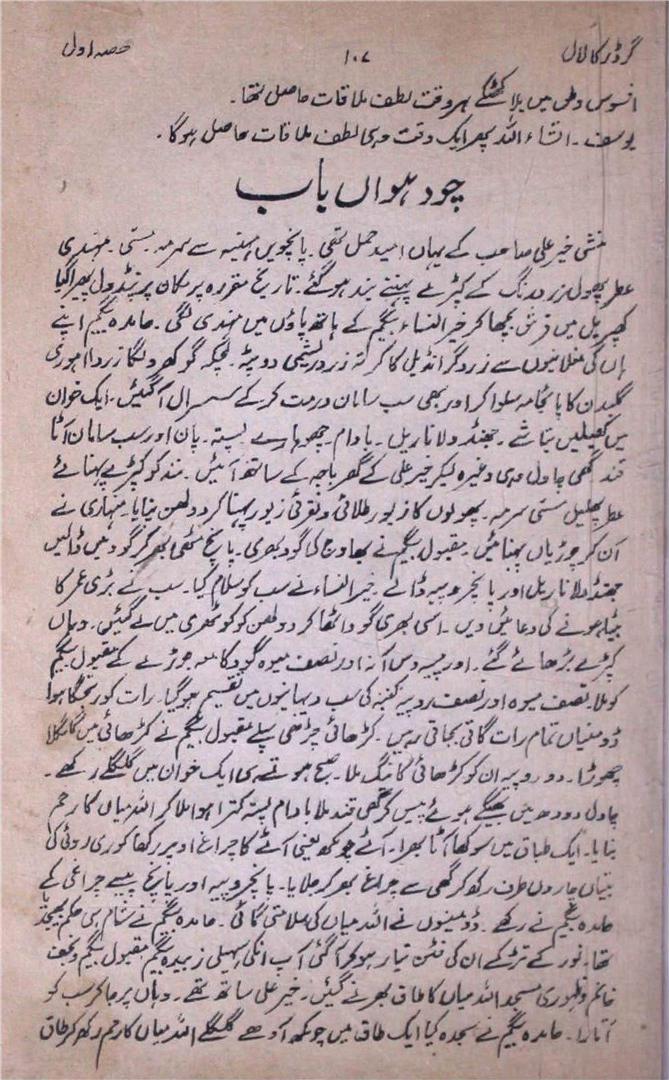 گرڈر کا لال ۱۰۷ حصہ اول
افسوس وطن میں بلا کھٹکے ہر وقت لطف ملاقات حاصل تھا۔
یوسف۔ انشاء اللہ پھر ایک وقت وہی لطف ملاقات حاصل ہوگا۔
چودھواں باب
منشی خیر علی صاحب کے یہاں امید حمل تھی۔ پانچویں مہینہ سے سرمہ۔ مسی۔ مہندی
عطر پھول زرد رنگ کے کپڑے پہننے بند ہوگئے۔ تاریخ مقررہ پر مکان پر پنڈول پھیرا گیا
کھپریل میں فرش بچھا کر خیر النساء بیگم کے ہاتھ پاؤں میں مہندی لگی۔ حامدہ بیگم اپنے
ہاں کی مغلانیوں سے زرد گرانڈیل کا کرتہ زرد ریشمی دوپٹہ۔ لچکہ گوکھرو لگا زرد اموری
گلبدن کا پائجامہ سلوا کر اور بھی سب سامان درست کر کے سسرال آ گئیں۔ ایک خوان
میں کھیلیں بتاشے۔ جھنڈولا ناریل۔ بادام۔ چھوہارے پستہ۔ پان اور سب سامان آٹا
قند گھی چاول دہی وغیرہ لیکر خیر علی کے گھر باجہ کے ساتھ آئیں۔ نند کو کپڑے پہنائے
عطر پھلیل مسی سرمہ۔ پھولوں کا زیور طلائی و نقرئی زیور پہنا کر دولھن بنایا۔ منہاری نے
آن کر چوڑیاں پہنائیں۔ مقبول بیگم نے بھاوج کی گود بھری۔ پانچ مٹھی بھر گود میں ڈالیں
جھنڈولا ناریل اور پانچ روپیہ ڈالے۔ خیر النساء نے سب کو سلام کیا۔ سب نے بڑی عمر کا
بیٹا ہونے کی دعائیں دیں۔ اسی بھری گود اٹھا کر دولھن کو کوٹھری میں لے گئیں۔ وہاں
کپڑے بڑھائے گئے۔ اور پیسہ دس آنہ اور نصف میوہ گود کا مع جوڑے کے مقبول بیگم
کو ملا نصف میوہ اور نصف روپیہ کنبہ کی سب دہیانیوں میں تقسیم ہوگیا۔ رات کو رتجگا ہوا
ڈومنیاں تمام رات گاتی بجاتی رہیں۔ کڑھائی چڑھی پہلے مقبول بیگم نے کڑھائی میں گلگلا
چھوڑا۔ دو روپیہ ان کو کڑھائی کا نیگ ملا۔ صبح ہوتے ہی ایک خوان میں گلگلے رکھے۔
چاول دودھ میں بھیگے ہوئے پیس کر گھی قند ملا بادام پستہ کترا ہوا ملا کر اللہ میاں کا رحم
بنایا۔ ایک طباق میں سوکھا آٹا بھرا۔ آٹے چومکھ یعنی آٹے کا چراغ اوپر رکھا کوری روئی کی
بتیاں چاروں طرف رکھ کر گھی سے چراغ بھر کر جلایا۔ پانچ روپیہ اور پانچ پیسے چراغی کے
حامدہ بیگم نے رکھے۔ ڈومنیوں نے اللہ میاں کی سلامتی گائی۔ حامدہ بیگم نے شام ہی حکم بھیجدیا
تھا۔ نور کے تڑکے ان کی فٹن تیار ہو کر آگئی آپ انکی سہیلی زبیدہ بیگم مقبول بیگم و نجف
خانم و ظہوری مسجد اللہ میاں کا طاق بھرنے گئیں۔ خیر علی ساتھ تھے۔ وہاں پر جا کر سب کو
اتارا۔ حامدہ بیگم نے سجدہ کیا ایک طاق میں چومکھ آدھے گلگلے اللہ میاں کا رحم رکھ کر طاق